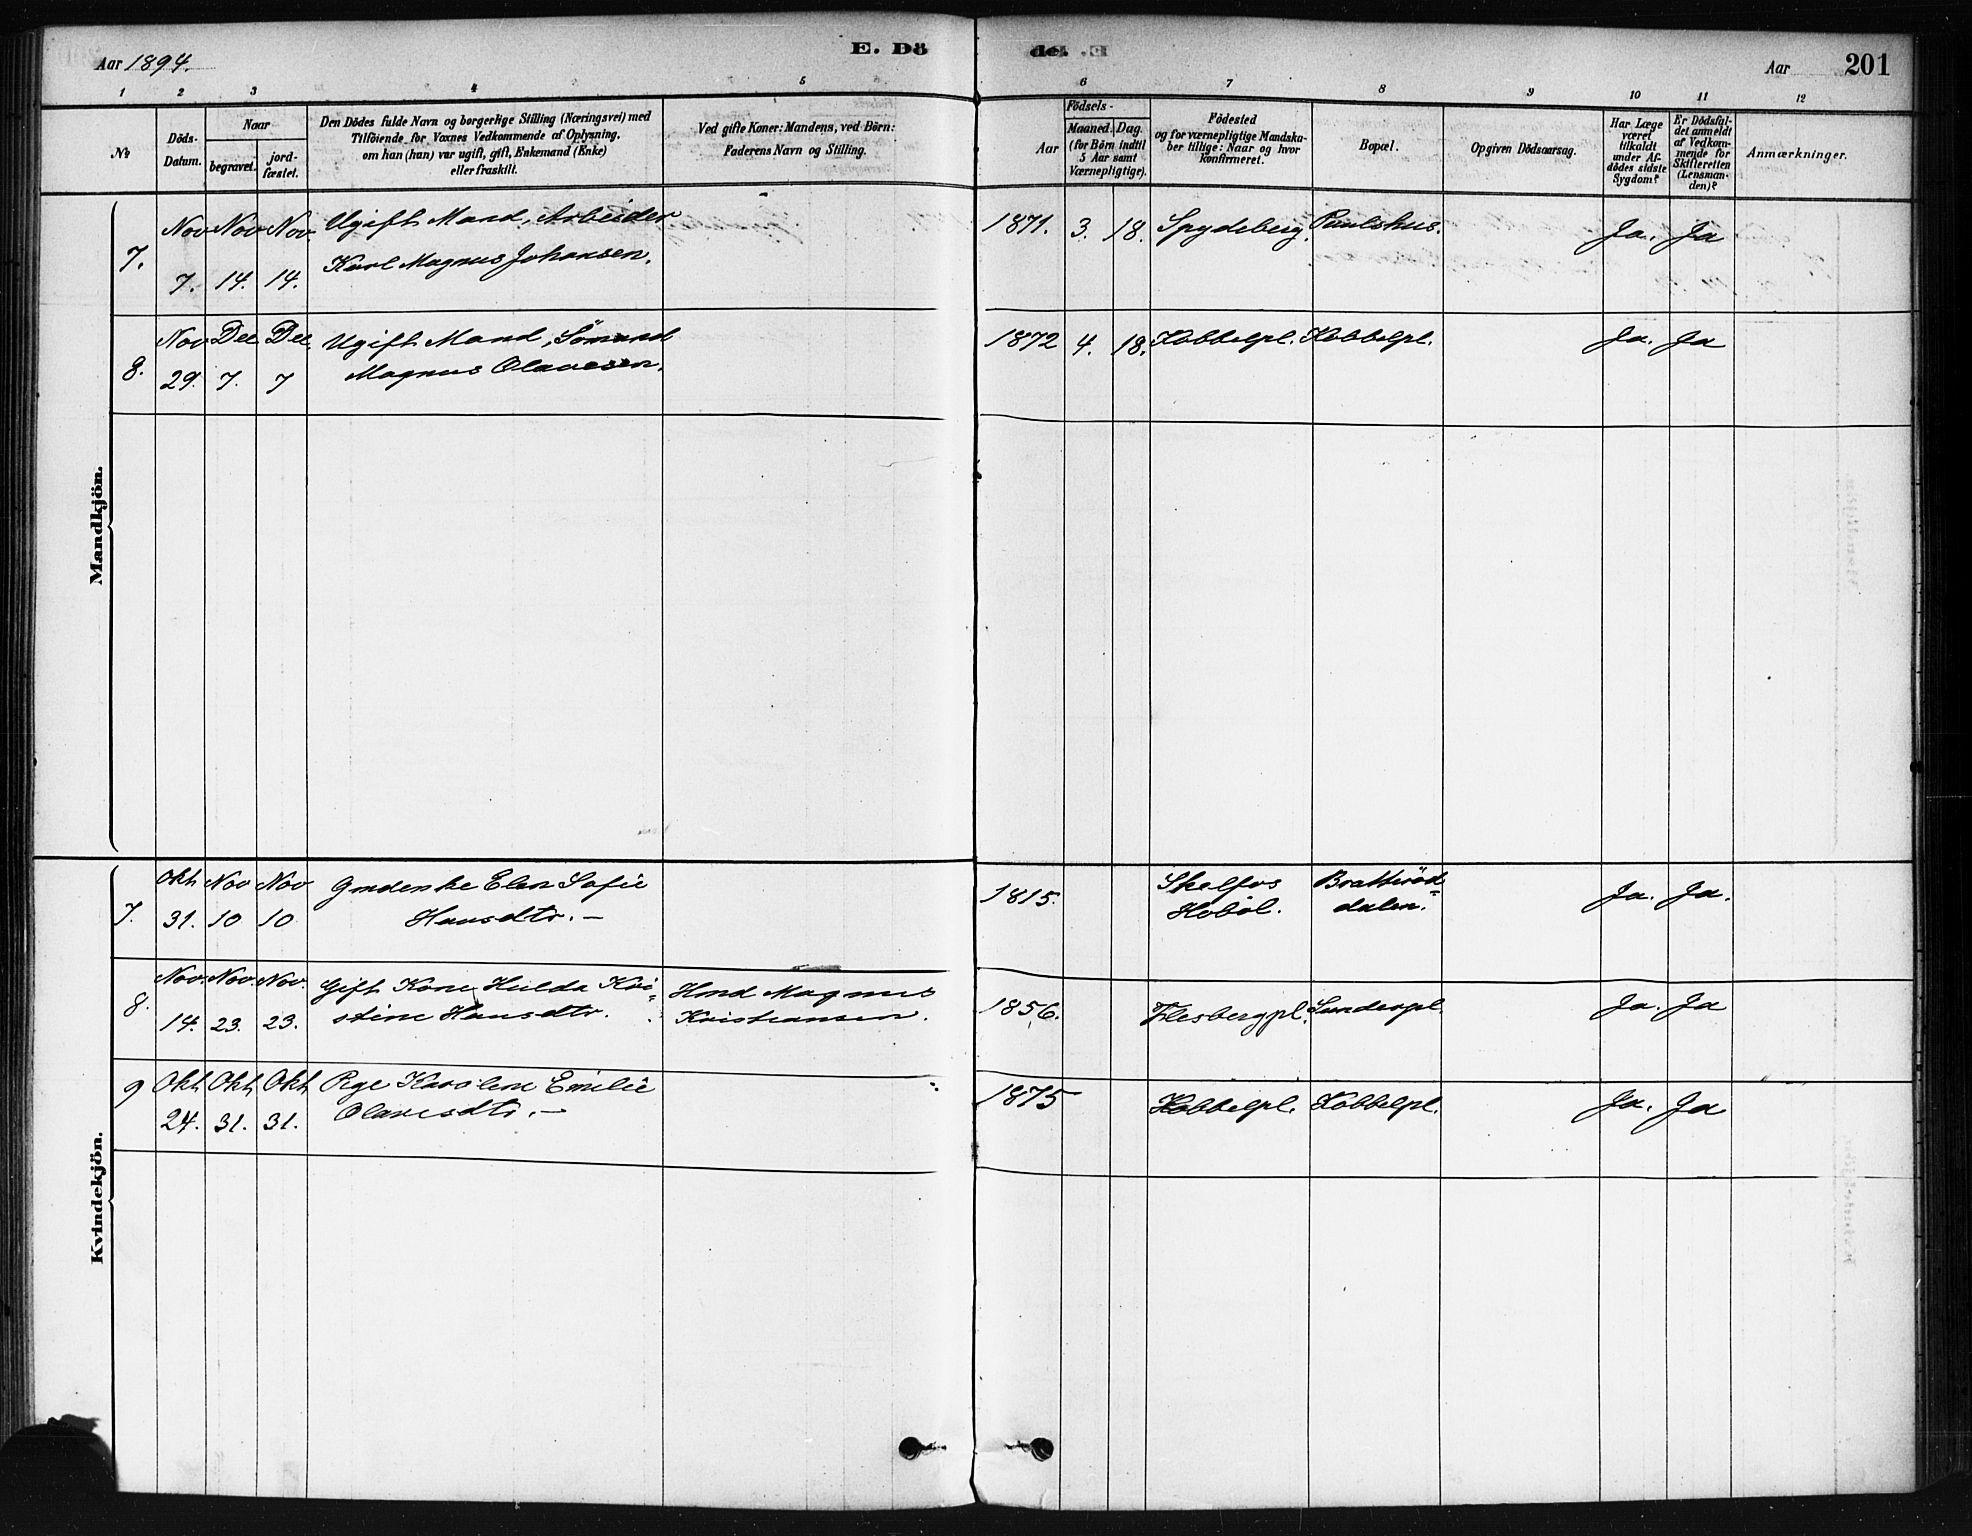 Aar 1894.
E. Dö
de. E
Aar
201
1 2 3 4 5 6 7 8 9 10 11 12
№
Döds-
Datum.
Naar
begravet.
jord-
fæstet.
Den Dödes fulde Navn og borgerlige Stilling (Næringsvei) med
Tilföiende for Voxnes Vedkommende af Oplysning,
om han (hun) var ugift, gift, Enkemand (Enke)
eller fraskilt.
Ved gifte Koner: Mandens, ved Börn:
Faderens Navn og Stilling.
Aar
Födsels-
Maaned. Dag.
(for Börn indtil
5 Aar samt
Værnepligtige).
Födested
og for værnepligtige Mandska-
ber tillige: Naar og hvor
konfirmeret.
Bopæl.
Opgiven Dödsaarsag.
Har Læge
været
tilkaldt
under Af-
dödes sidste
Sygdom?
Er Dödsfal-
det anmeldt
af Vedkom-
mende for
Skifteretten
(Lensman-
den)?
Anmærkninger.
Mandkjön.
7. Nov 7. Nov 14. Nov. 14. Ugift Mand, Arbeider
Karl Magnus Johansen.
1871. 3. 18. Spydeberg. Paulshus. Ja. Ja
8. Nov 29. Dec 7. Dec 7 Ugift Mand, Sömand
Magnus Olavesen.
1872 4. 18. Kobbelpl. Kobbelpl. Ja. Ja
Kvindekjön.
7. Okt 31. Nov 10 Nov 10 Elen Sofie
Hansdtr. —
1815. Skelfos
Hoböl.
Bratteröd=
dalen.
Ja. Ja.
8. Nov. 14. Nov. 23. Nov. 23. Gift Kone Hulda Kri=
stine Hansdtr.
Hmd Magnus
Kristiansen.
1856. Flesbergpl. Sunderpl. Ja. Ja
9 Okt 24. Okt 31. Okt 31. Pge Karoline Emilie
Olavesdtr. —
1875 Kobbelpl. Kobbelpl. Ja. Ja